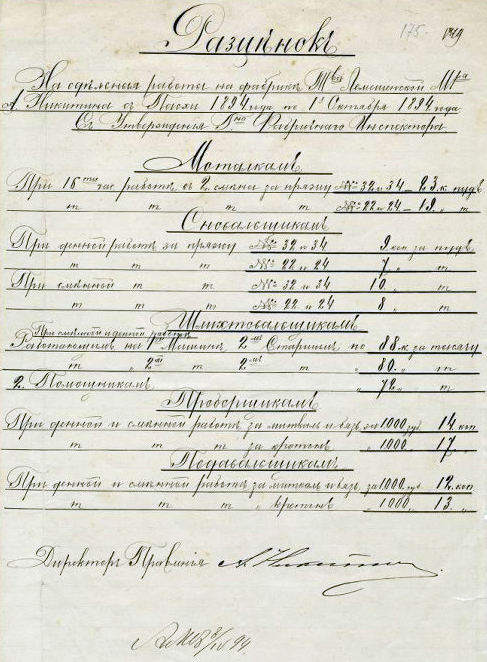 175. 149
Разцѣнокъ
На сдѣльныя работы на фабрикѣ Тва Лемешенской Мра
А. Никитина съ Пасхи 1894 года по 1е Октября 1894 года
Съ Утвержденья Гна Фабричнаго Инспектора
Моталкамъ
При 16ти час. работѣ въ 2 смѣны за пряжу №№ 32 и 34 – 23 к. пудъ
" т т т т №№ 22 и 24 – 19 " т
Сновальщикамъ
При денной работѣ за пряжу №№ 32 и 34 9 коп за пудъ
" т т т №№ 22 и 24 7 " т
При смѣнной т т №№ 32 и 34 10 " т
" т т т №№ 22 и 24 8 " т
Шлихтовальщикамъ
При смѣнной и денной работѣ
Работающимъ на 1ой Машинѣ 2мъ Старшимъ по 88 к за тысячу
т " 2ой т 2мъ т " 80 " т
2. Помощникамъ " 72 " т
Проборщикамъ
При денной и смѣнной работѣ за миткаль и бязь за 1000 14 коп
" т т т за кретонъ " 1000 17 "
Подавальщикамъ
При денной и смѣнной работѣ за миткаль и бязь за 1000 12 коп
" т т т " кретонъ " 1000 13 "
Директоръ Правленія А. Никитинъ
94.